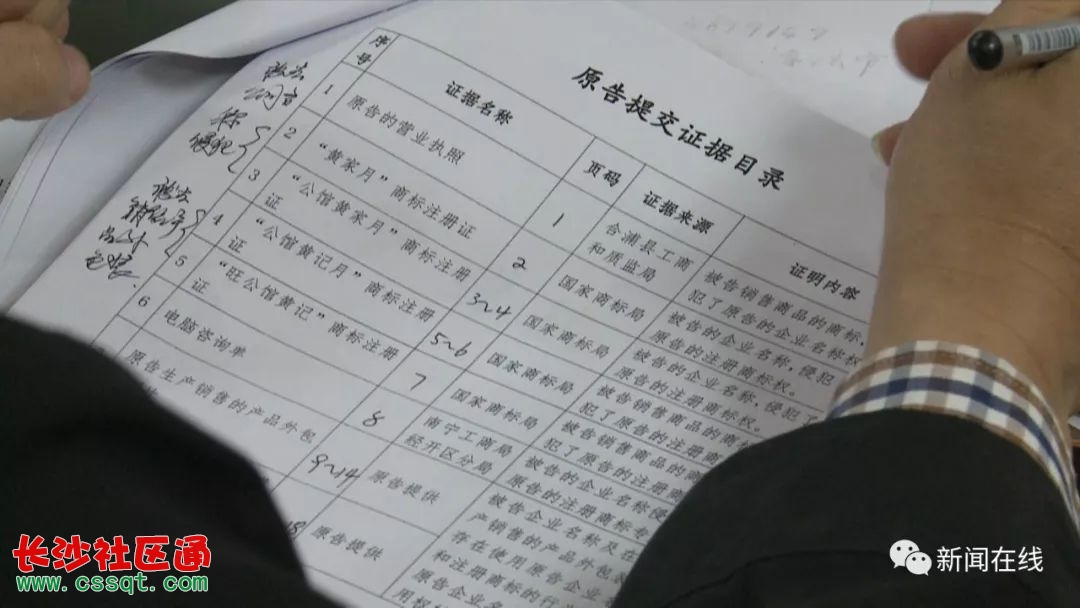 原告提交证据目录
序号
证据名称
页码
证据来源
证明内容
1
原告的营业执照
1
合浦县工商
和质监局
被告销售商品的商标,
犯了原告的企业名称权
2
“黄家月”商标注册证
2
国家商标局
被告的企业名称,侵犯
原告的注册商标权。
3
“公馆黄家月”商标注册
证
3~4
国家商标局
被告的企业名称,侵犯了
原告的注册商标权。
4
“公馆黄记月”商标注册
证
5~6
国家商标局
被告销售商品的商标
犯了原告的注册
5
“旺公馆黄记”商标注册
证
7
国家商标局
被告销售商品的商
犯了原告的注册商
6
电脑咨询单
8
南宁工商局
经开区分局
被告的企业名称侵
原告的注册商标专
原告生产销售的产品外包
9~14
原告提供
被告企业名称及在
产销售的产品外包
存在使用原告企业
和注册商标的行
18
原告提供
原告企业名
用权
长沙社区通
www.cssqt.com
新闻在线